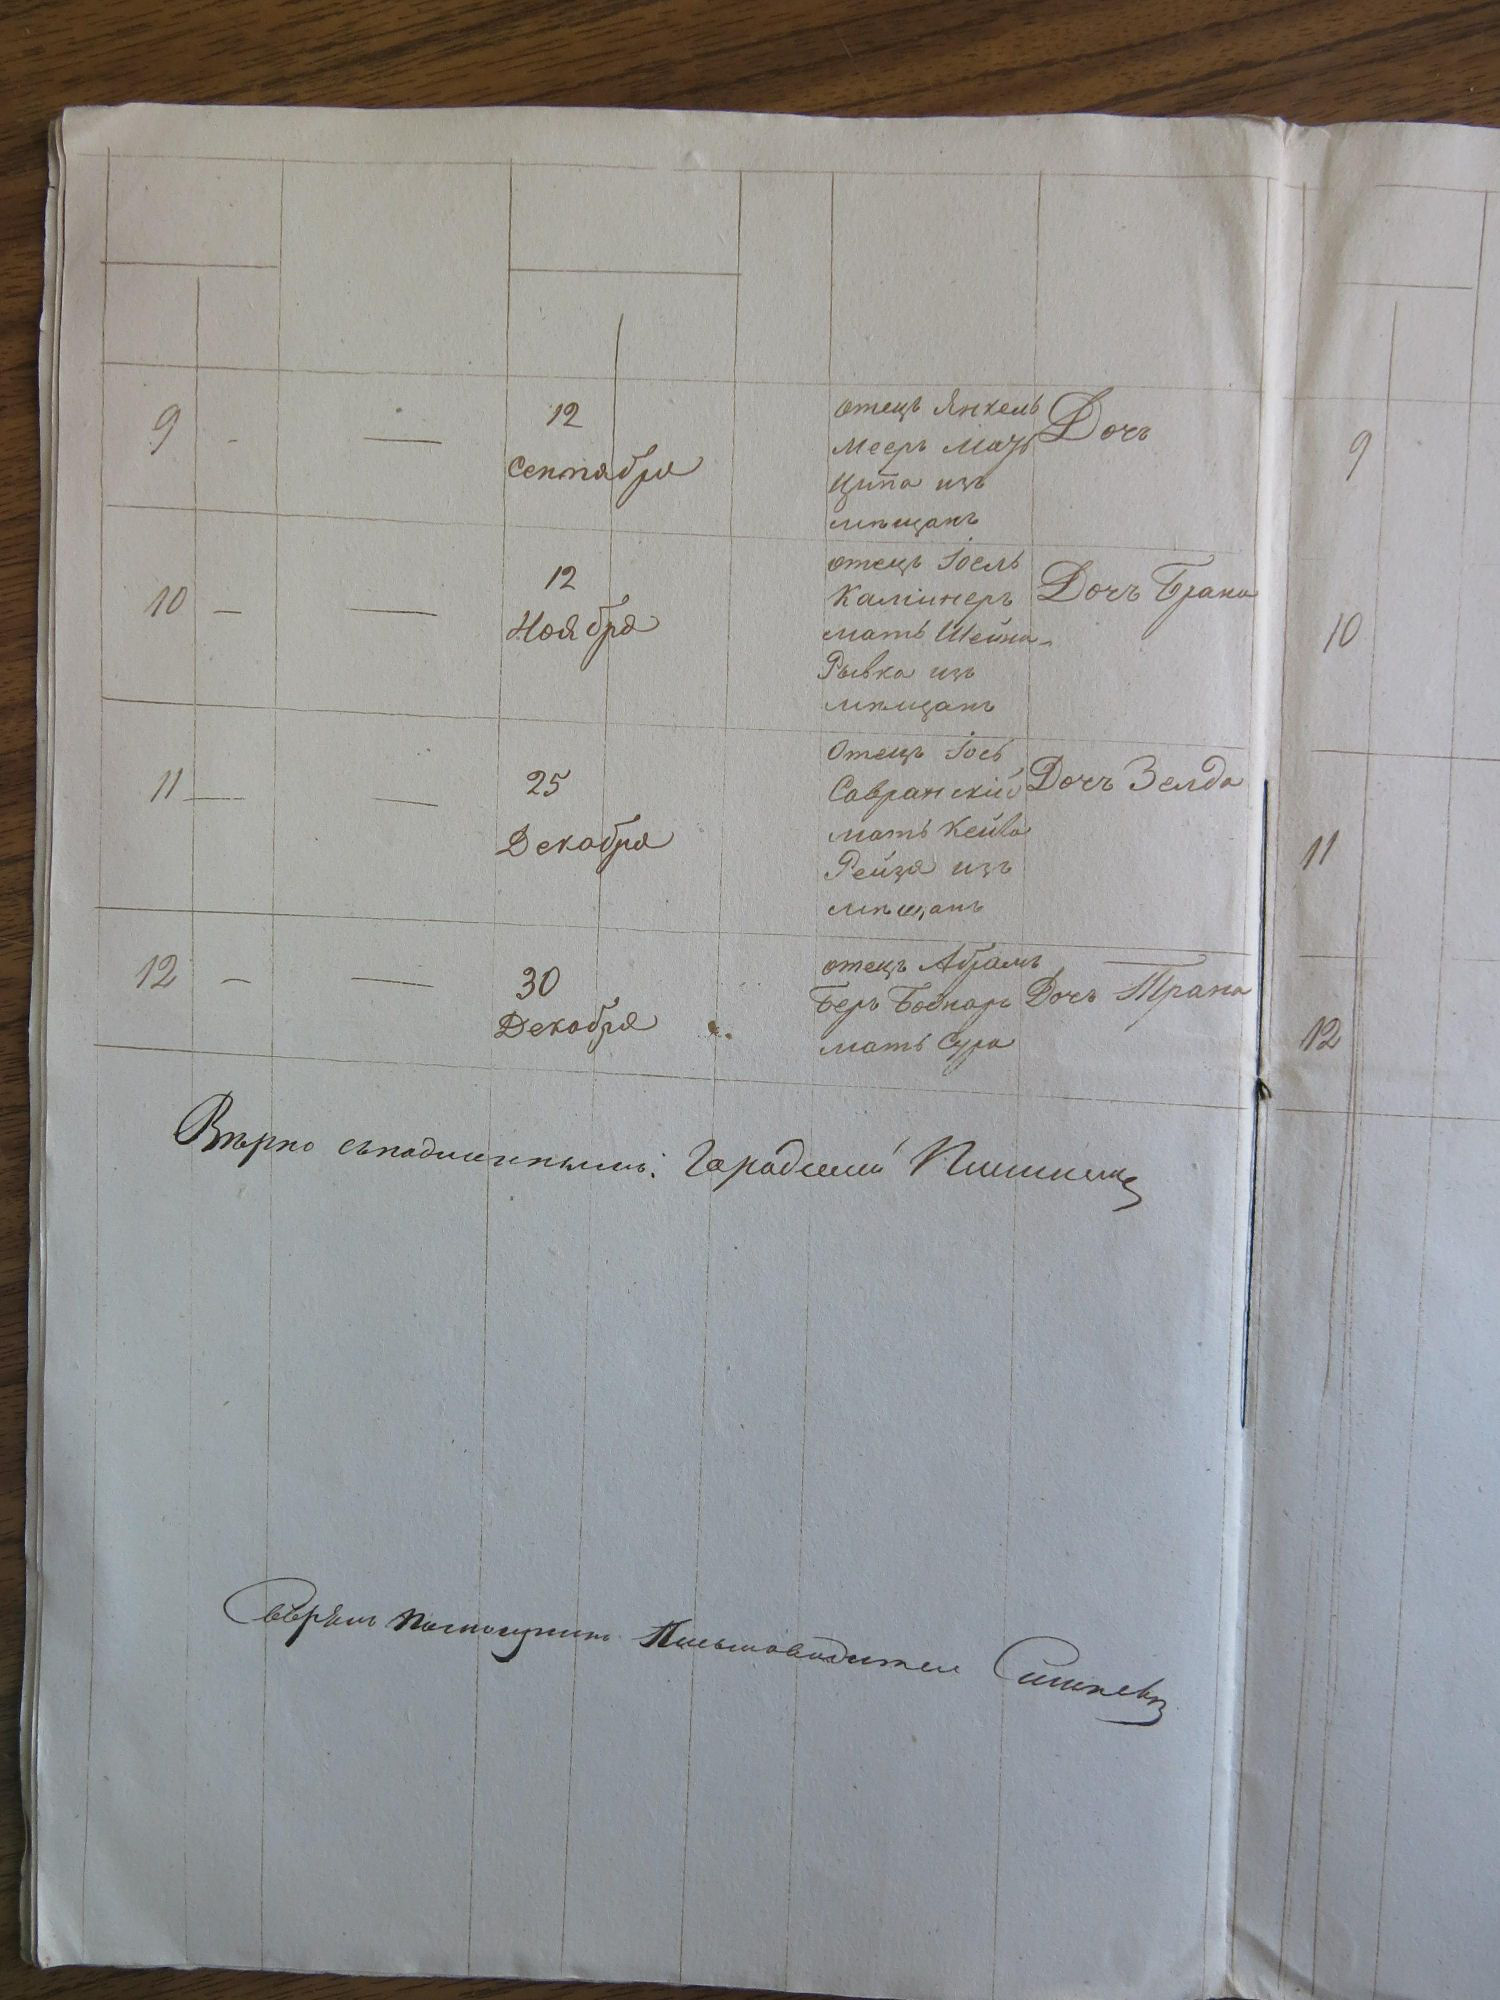 9 - — 12 отецъ Янкель Дочь 9
Сентября Мееръ мать
Ципа изъ
мѣщанъ
10 — — 12 отецъ Іоель Дочъ Брана 10
Ноября Калинеръ
мать Шейна-
Рывка изъ
мѣщанъ
11 — — 25 Отецъ Іось Дочъ Зелда 11
Декабря Савранскій
мать Кейла
Рейзя изъ
мѣщанъ
12 — — 30 отецъ Абрамъ Дочь Трана 12
Декабря Беръ Боднаръ
мать Сура
Вѣрно съ подлиннымъ: Городской
Свѣрялъ Письмоводитель